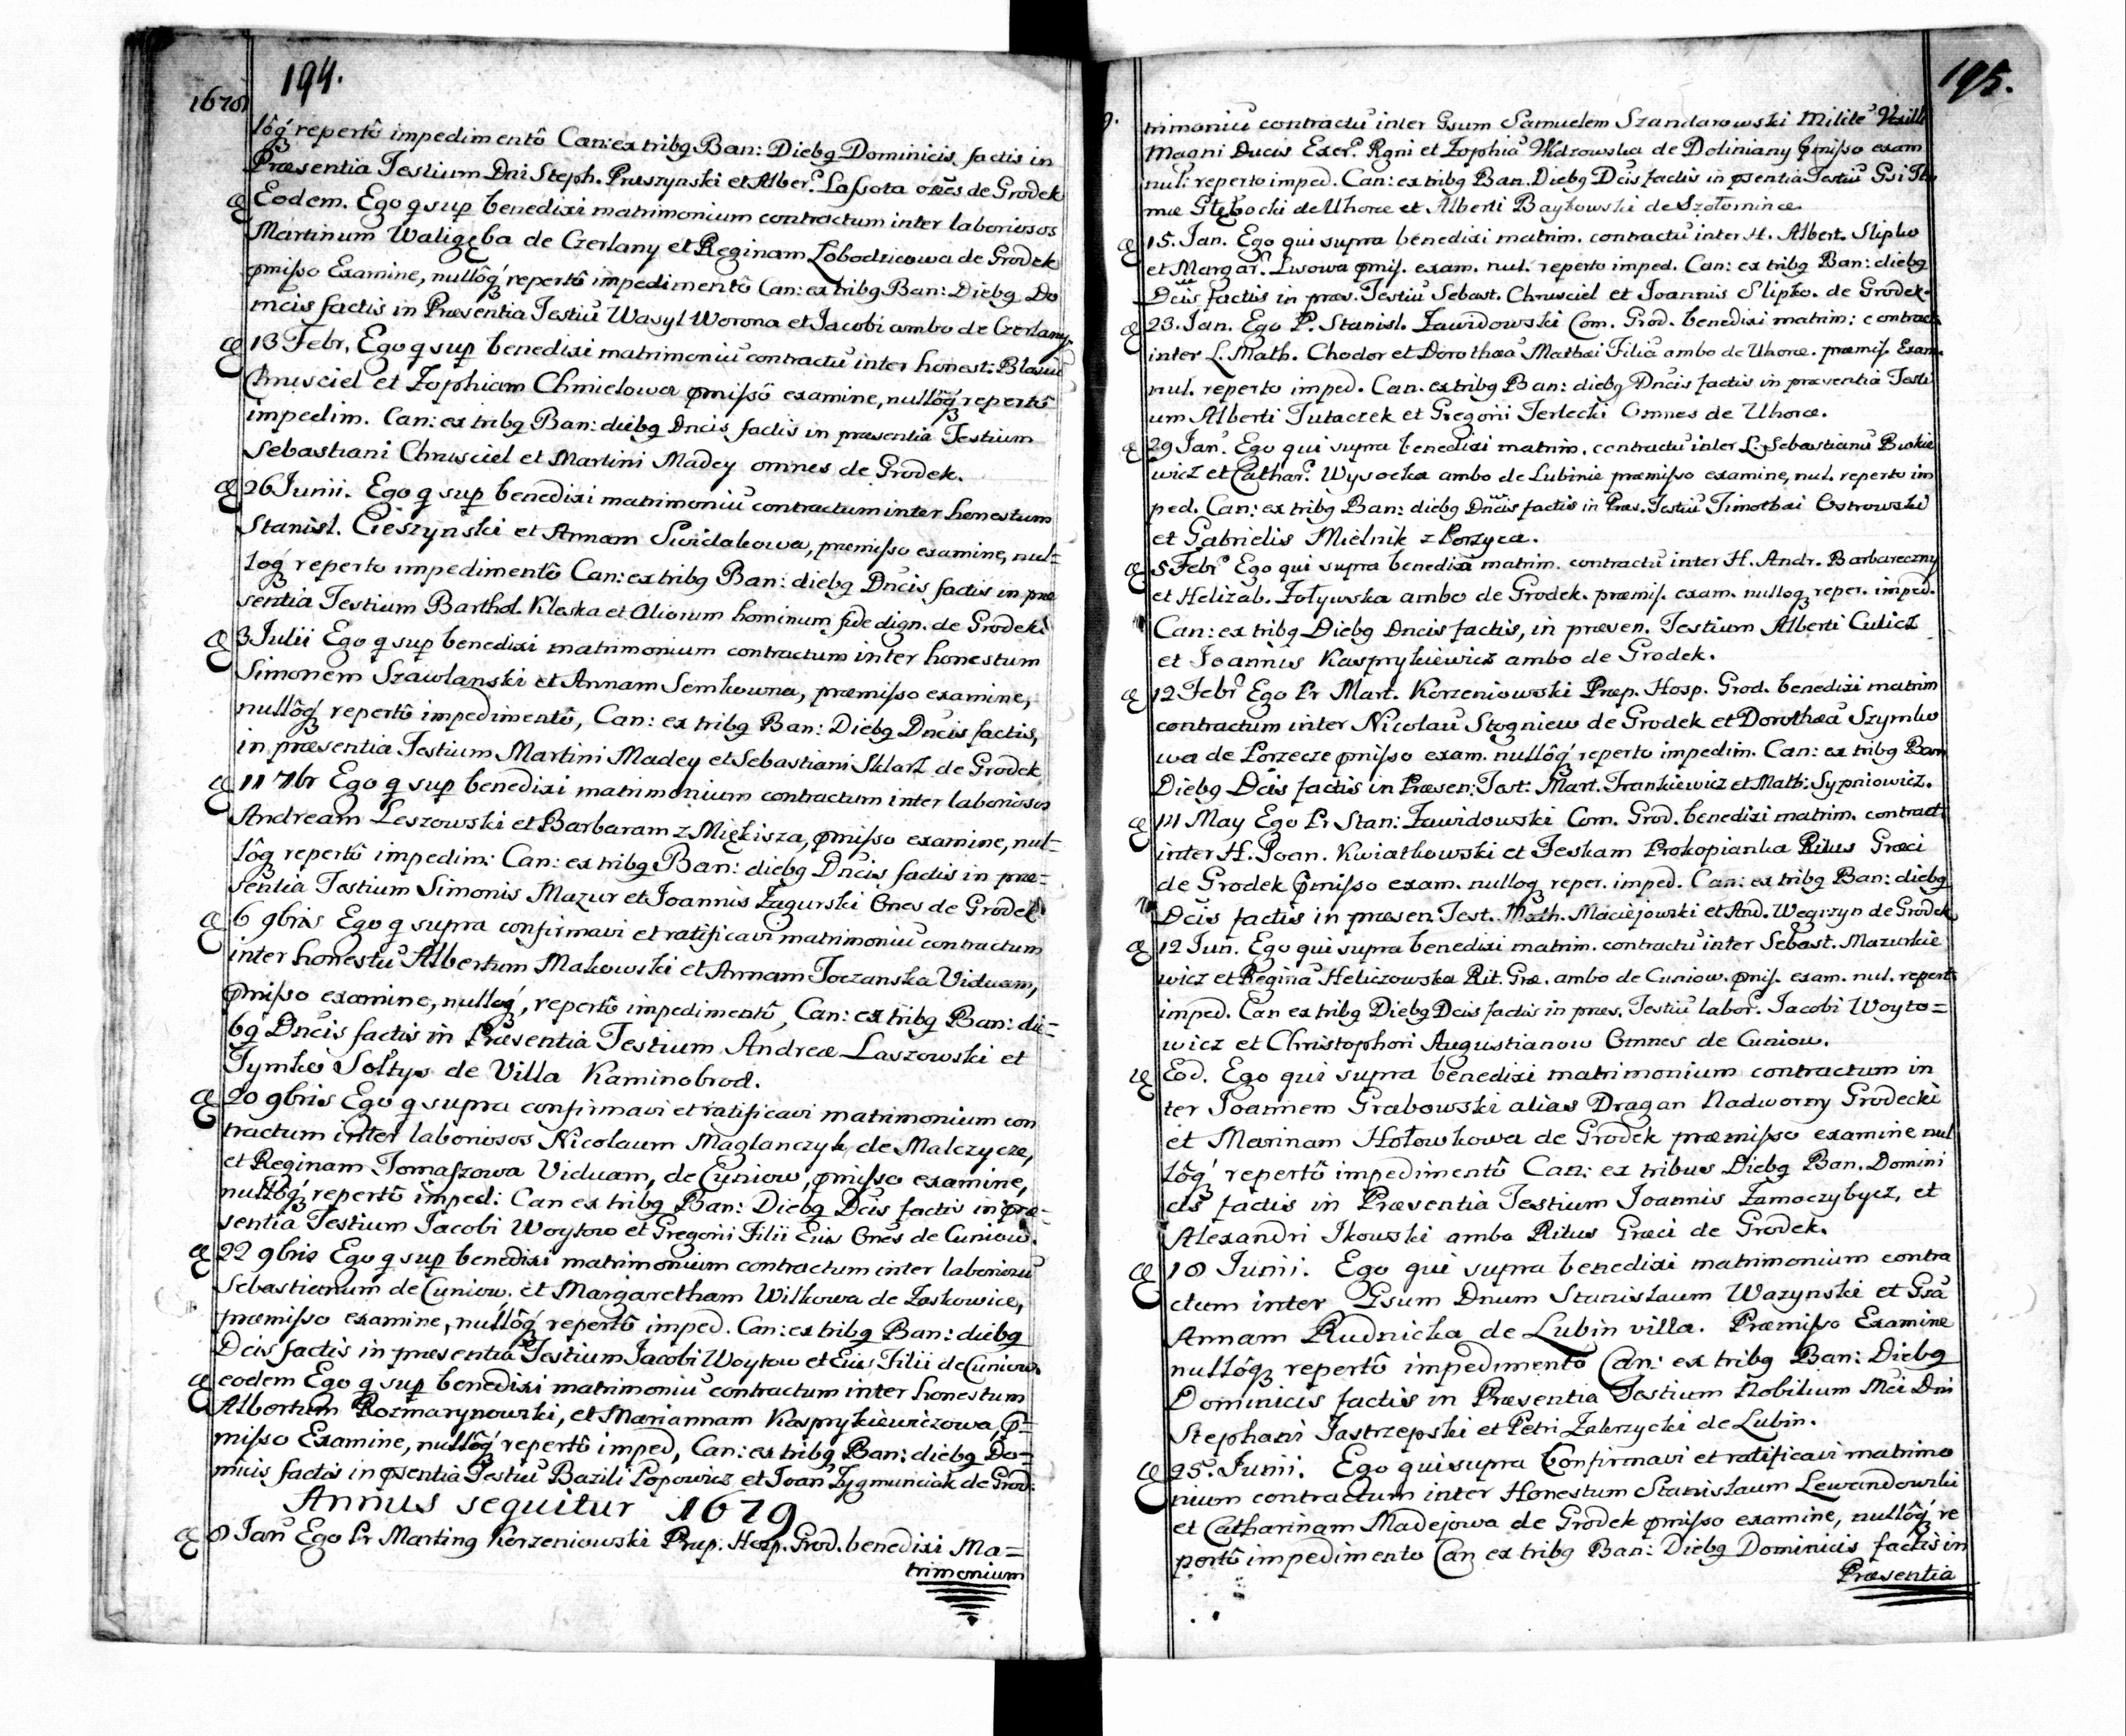 194.
1678
lôq́ repertô impedimentô Can: ex tribg Ban: Diebg Dominicis factis in
Præsentia Testium Dni Steph. Pruszynski et Alber. Lassota oẽs de Grodek
Eodem. Ego q sup benedixi matrimonium contractum inter laboriosos
Martinum Waligęba de Czerlany et Reginam Łobodzicowa de Grodek
pmisso Examine, nullôq́ repertô impedimentô Can: ex tribg Ban: Diebg Do
mcis factis in Præsentia Testiũ Wasyl Worona et Jacobi ambo de Czerlany.
13 Febr. Ego q sup benedixi matrimoniũ contractũ inter honest: Blasiũ
Chrusciel et Zophiam Chmielowa pmissô examine, nullôq́ repertô
impedim. Can: ex tribg Ban: diebg Dncis factis in præsentia Testium
Sebastiani Chrusciel et Martini Madey omnes de Grodek.
26 Junii. Ego q sup benedixi matrimoniũ contractum inter honestum
Stanisl. Cieszynski et Annam Swidakowa, præmisso examine, nul-
loq́ reperto impedimentô Can: ex tribg Ban: diebg Dncis factis in præ
sentia Testium Barthol. Kleska et Aliorum hominum fide dign. de Grodek
3 Julii Ego q sup benedixi matrimonium contractum inter honestum
Simonem Szawlanski et Annam Semkowna, præmisso examine,
nullôq́ repertô impedimentô, Can: ex tribg Ban: Diebg Dncis factis,
in præsentia Testium Martini Madey et Sebastiani Sklarz de Grodek
11 7br Ego q sup benedixi matrimonium contractum inter laboriosos
Andream Leszowski et Barbaram z Miękisza, pmisso examine, nul-
lôq repertô impedim: Can: ex tribg Ban: diebg Dncis factis in præ-
sentia Testium Simonis Mazur et Joannis Zagurski Ones de Grodek
6 9bris Ego q supra confirmavi et ratificavi matrimoniũ contractum
inter honestũ Albertum Makowski et Annam Toczanska Viduam,
pmisso examine, nulloq́, repertô impedimentô, Can: ex tribg Ban: die-
bg Dncis factis in Præsentia Testium Andreæ Laszowski et
Tymko Soltys de Villa Kaminobrod.
20 9bris Ego q supra confirmavi et ratificavi matrimonium con
tractum inter laboriosos Nicolaum Maglanczyk, de Malczycze,
et Reginam Tomaszowa Viduam, de Cuniow, pmisso examine,
nullôq́ repertô imped: Can ex tribg Ban: Diebg Dcis factis in præ-
sentia Testium Jacobi Woytow et Gregorii Filii Eius Ones de Cuniow.
22 9bris Ego q sup benedixi matrimonium contractum inter laboriosũ
Sebastianum de Cuniow. et Margaretham Wilkowa de Zaskowice,
præmisso examine, nullôq́ repertô imped. Can: ex tribg Ban: diebg
Dcis factis in præsentia Testium Jacobi Woytow et Eius Filii de Cuniow.
eodem Ego q sup benedixi matrimoniũ contractum inter honestum
Albertum Rozmarynowski, et Mariannam Kasprykiewiczowa, p-
misso Examine, nullôq́ repertô imped, Can: ex tribg Ban: diebg Do-
micis factis in psentia Testiũ Bazili Popowicz et Joan Zygmunciak de Grod:
Annus sequitur 1679
8 Jan Ego Pr Marting Korzeniowski Præp. Hosp. Grod. benedixi Ma-
trimonium
195.
9.
trimoniũ contractũ inter Gsum Samuelem Szandarowski Militẽ
Magni Ducis Exer. Rgni et Zophiã de Doliniany pmisso exam
nul: reperto imped. Can: ex tribg Ban. Diebg Dcis factis in psentia Testiũ Gsi
Głębocki de Uhorce et Alberti Baykowski de Szołomince.
15. Jan. Ego qui supra benedixi matrim. contractũ inter H. Albert. Slipko
et Margar. Lwowa pmis. exam. nul. reperto imped. Can: ex tribg Ban: diebg
Dcis factis in præs. Testiũ Sebast. Chrusciel et Joannis Slipko. de Grodek.
23. Jan. Ego P. Stanisl. Zawidowski Com. Grod. benedixi matrim: contract
inter L. Math. Chodor et Dorothæã Mathæi Filiã ambo de Uhorce. præmis. Exam.
nul. reperto imped. Can. ex tribg Ban: diebg Dncis factis in præsentia Testi
um Alberti Tutaczek et Gregorii Terlecki Omnes de Uhorce.
29 Jan. Ego qui supra benedixi matrim. contractũ inter L. Sebastianũ Buskie
wicz et Cathar. Wysocka ambo de Lubinie præmisso examine, nul. reperto im
ped. Can: ex tribg Ban: diebg Dncis factis in Præs. Testiũ Timothæi Ostrowski
et Gabrielis Mielnik z Porzyca.
5 Febr Ego qui supra benedixi matrim. contractũ inter H. Andr. Barbareczny
et Helizab. Zoływska ambo de Grodek. præmis. exam. nulloq reper. imped.
Can: ex tribg Diebg Dncis factis, in præsen. Testium Alberti Culicz
et Joannis Kasprykiewicz ambo de Grodek.
12 Febr Ego Pr Mart. Korzeniowski Præp. Hosp. Grod. benedixi matrim
contractum inter Nicolaũ Stogniew de Grodek et Dorothæã Szymko
wa de Porzecze pmisso exam. nullôq́ reperto impedim. Can: ex tribg Ban
Diebg Dcis factis in Præsen: Test: Mart. Frankiewicz et Math: Sypniowicz.
14 May Ego Pr Stan: Zawidowski Com. Grod. benedixi matrim. contract
inter H. Joan. Kwiatkowski et Teskam Prokopianka Ritus Græci
de Grodek pmisso exam. nulloq reper. imped. Can: ex tribg Ban: diebg
Dcis factis in præsen. Test. Math. Maciejowski et And. Wegrzyn de Grodek
12 Jun. Ego qui supra benedixi matrim. contractũ inter Sebast. Mazurkie
wicz et Reginã Heliczowska Rit. Græ. ambo de Cuniow. pmis. exam. nul. reperto
imped. Can ex tribg Diebg Dcis factis in præs. Testiũ labor. Jacobi Woyto-
wicz et Christophori Augustianow Omnes de Cuniow.
Eod. Ego qui supra benedixi matrimonium contractum in
ter Joannem Grabowski alias Dragan Nadworny Grodecki
et Marinam Hołowkowa de Grodek præmisso examine nul
lôq́ repertô impedimentô Can: ex tribus Diebg Ban. Domini
cis factis in Præsentia Testium Joannis Zamoczybycz, et
Alexandri Ikowski ambo Ritus Græci de Grodek.
18 Junii. Ego qui supra benedixi matrimonium contra
ctum inter Gsum Dnum Stanislaum Wazynski et Gsã
Annam Rudnicka de Lubin villa. Præmisso Examine
nullóq repertô impedimentô Can: ex tribg Ban: Diebg
Dominicis factis in Præsentia Testium Nobilium Mci Dni
Stephani Jastrzepski et Petri Zakrzycki de Lubin.
25. Junii. Ego qui supra Confirmavi et ratificavi matrimo
nium contractum inter Honestum Stanislaum Lewandowski
et Catharinam Madejowa de Grodek pmisso examine, nullôq́ re
pertô impedimento Can ex tribg Ban: Diebg Dominicis factis in
Præsentia